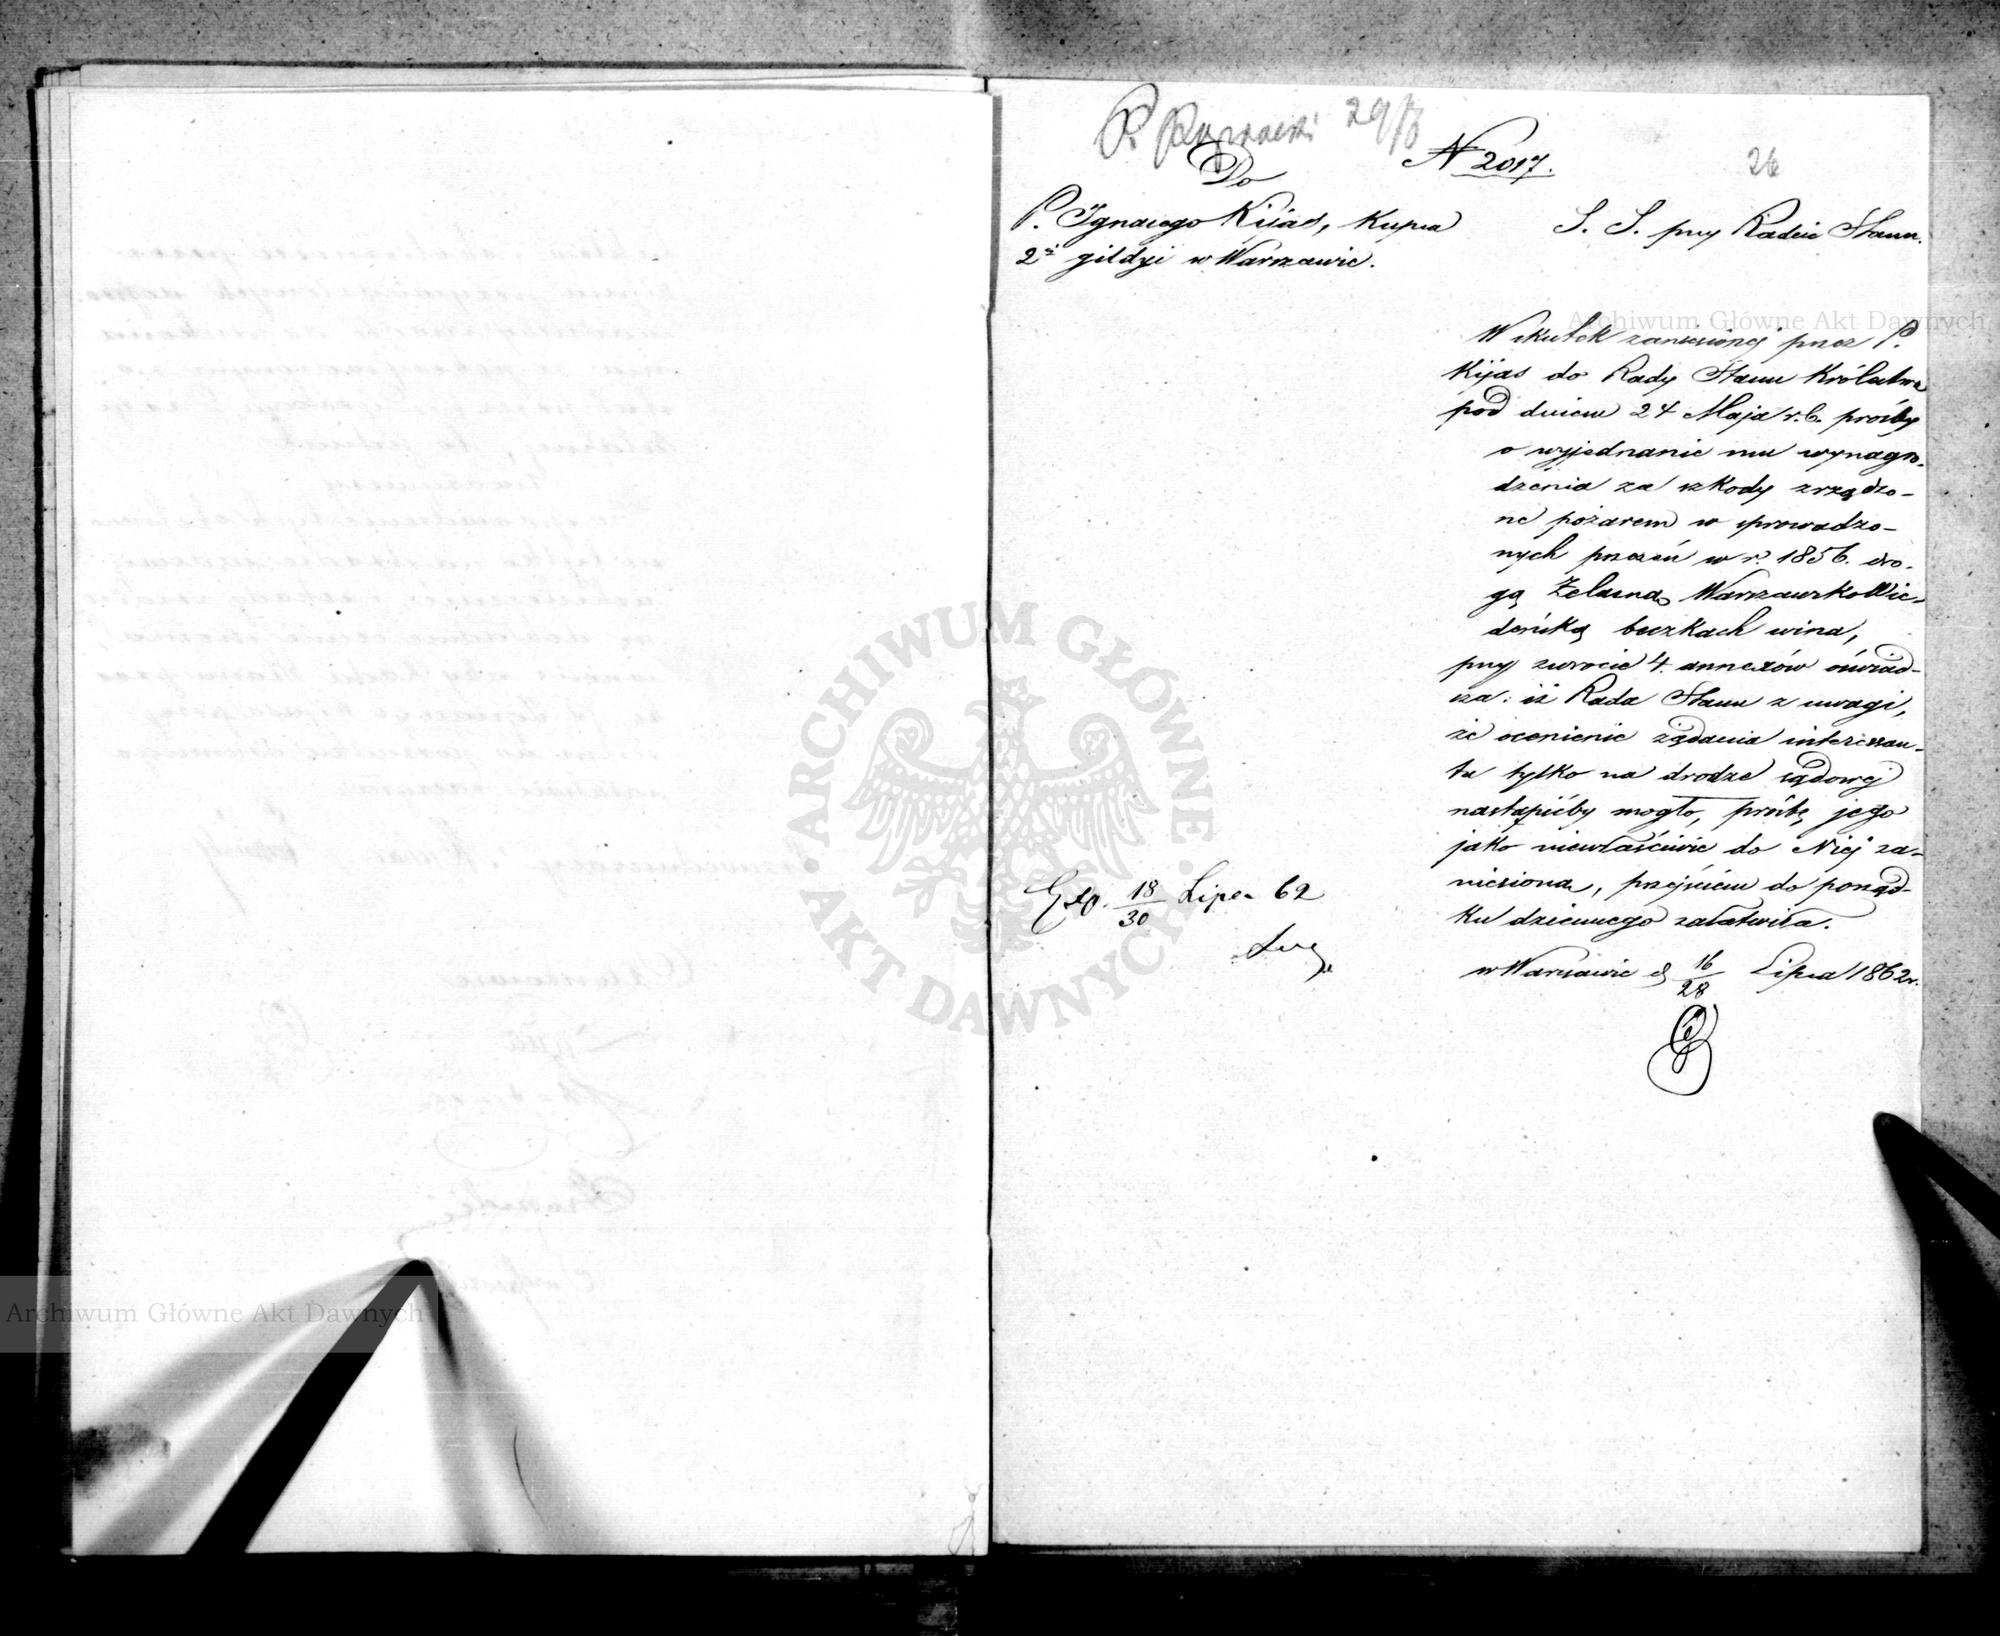 29/8
N 2017.
26
Do
P. Ignacego Kijas, Kupca
2ej gildyi w Warszawie.
S. S. przy Radzie Stanu.
Wskutek zaniesionej przez P.
Kijas do Rady Stanu Królestwa
pod dniem 24 Maja r.b. prośby
o wyjednanie mu wynagro-
dzenia za szkody zrządzo-
ne pożarem w sprowadzo-
nych przezeń w r. 1856. dro-
gą Żelazną Warszawsko Wie-
deńską beczkach wina,
przy zwrocie 4. annexów oświad-
cza: iż Rada Stanu z uwagi,
że ocenienie żądania interessan-
ta tylko na drodze sądowej
nastąpićby mogło, prośbę jego
jako niewłaściwie do Niej za-
niesioną, przejściem do porząd-
ku dziennego załatwiła.
w Warszawie d 16/28 Lipca 1862 r.
Exp. 18/30 Lipca 62
ARCHIWUM GŁÓWNE AKT DAWNYCH
Archiwum Główne Akt Dawnych
Archiwum Główne Akt Dawnych